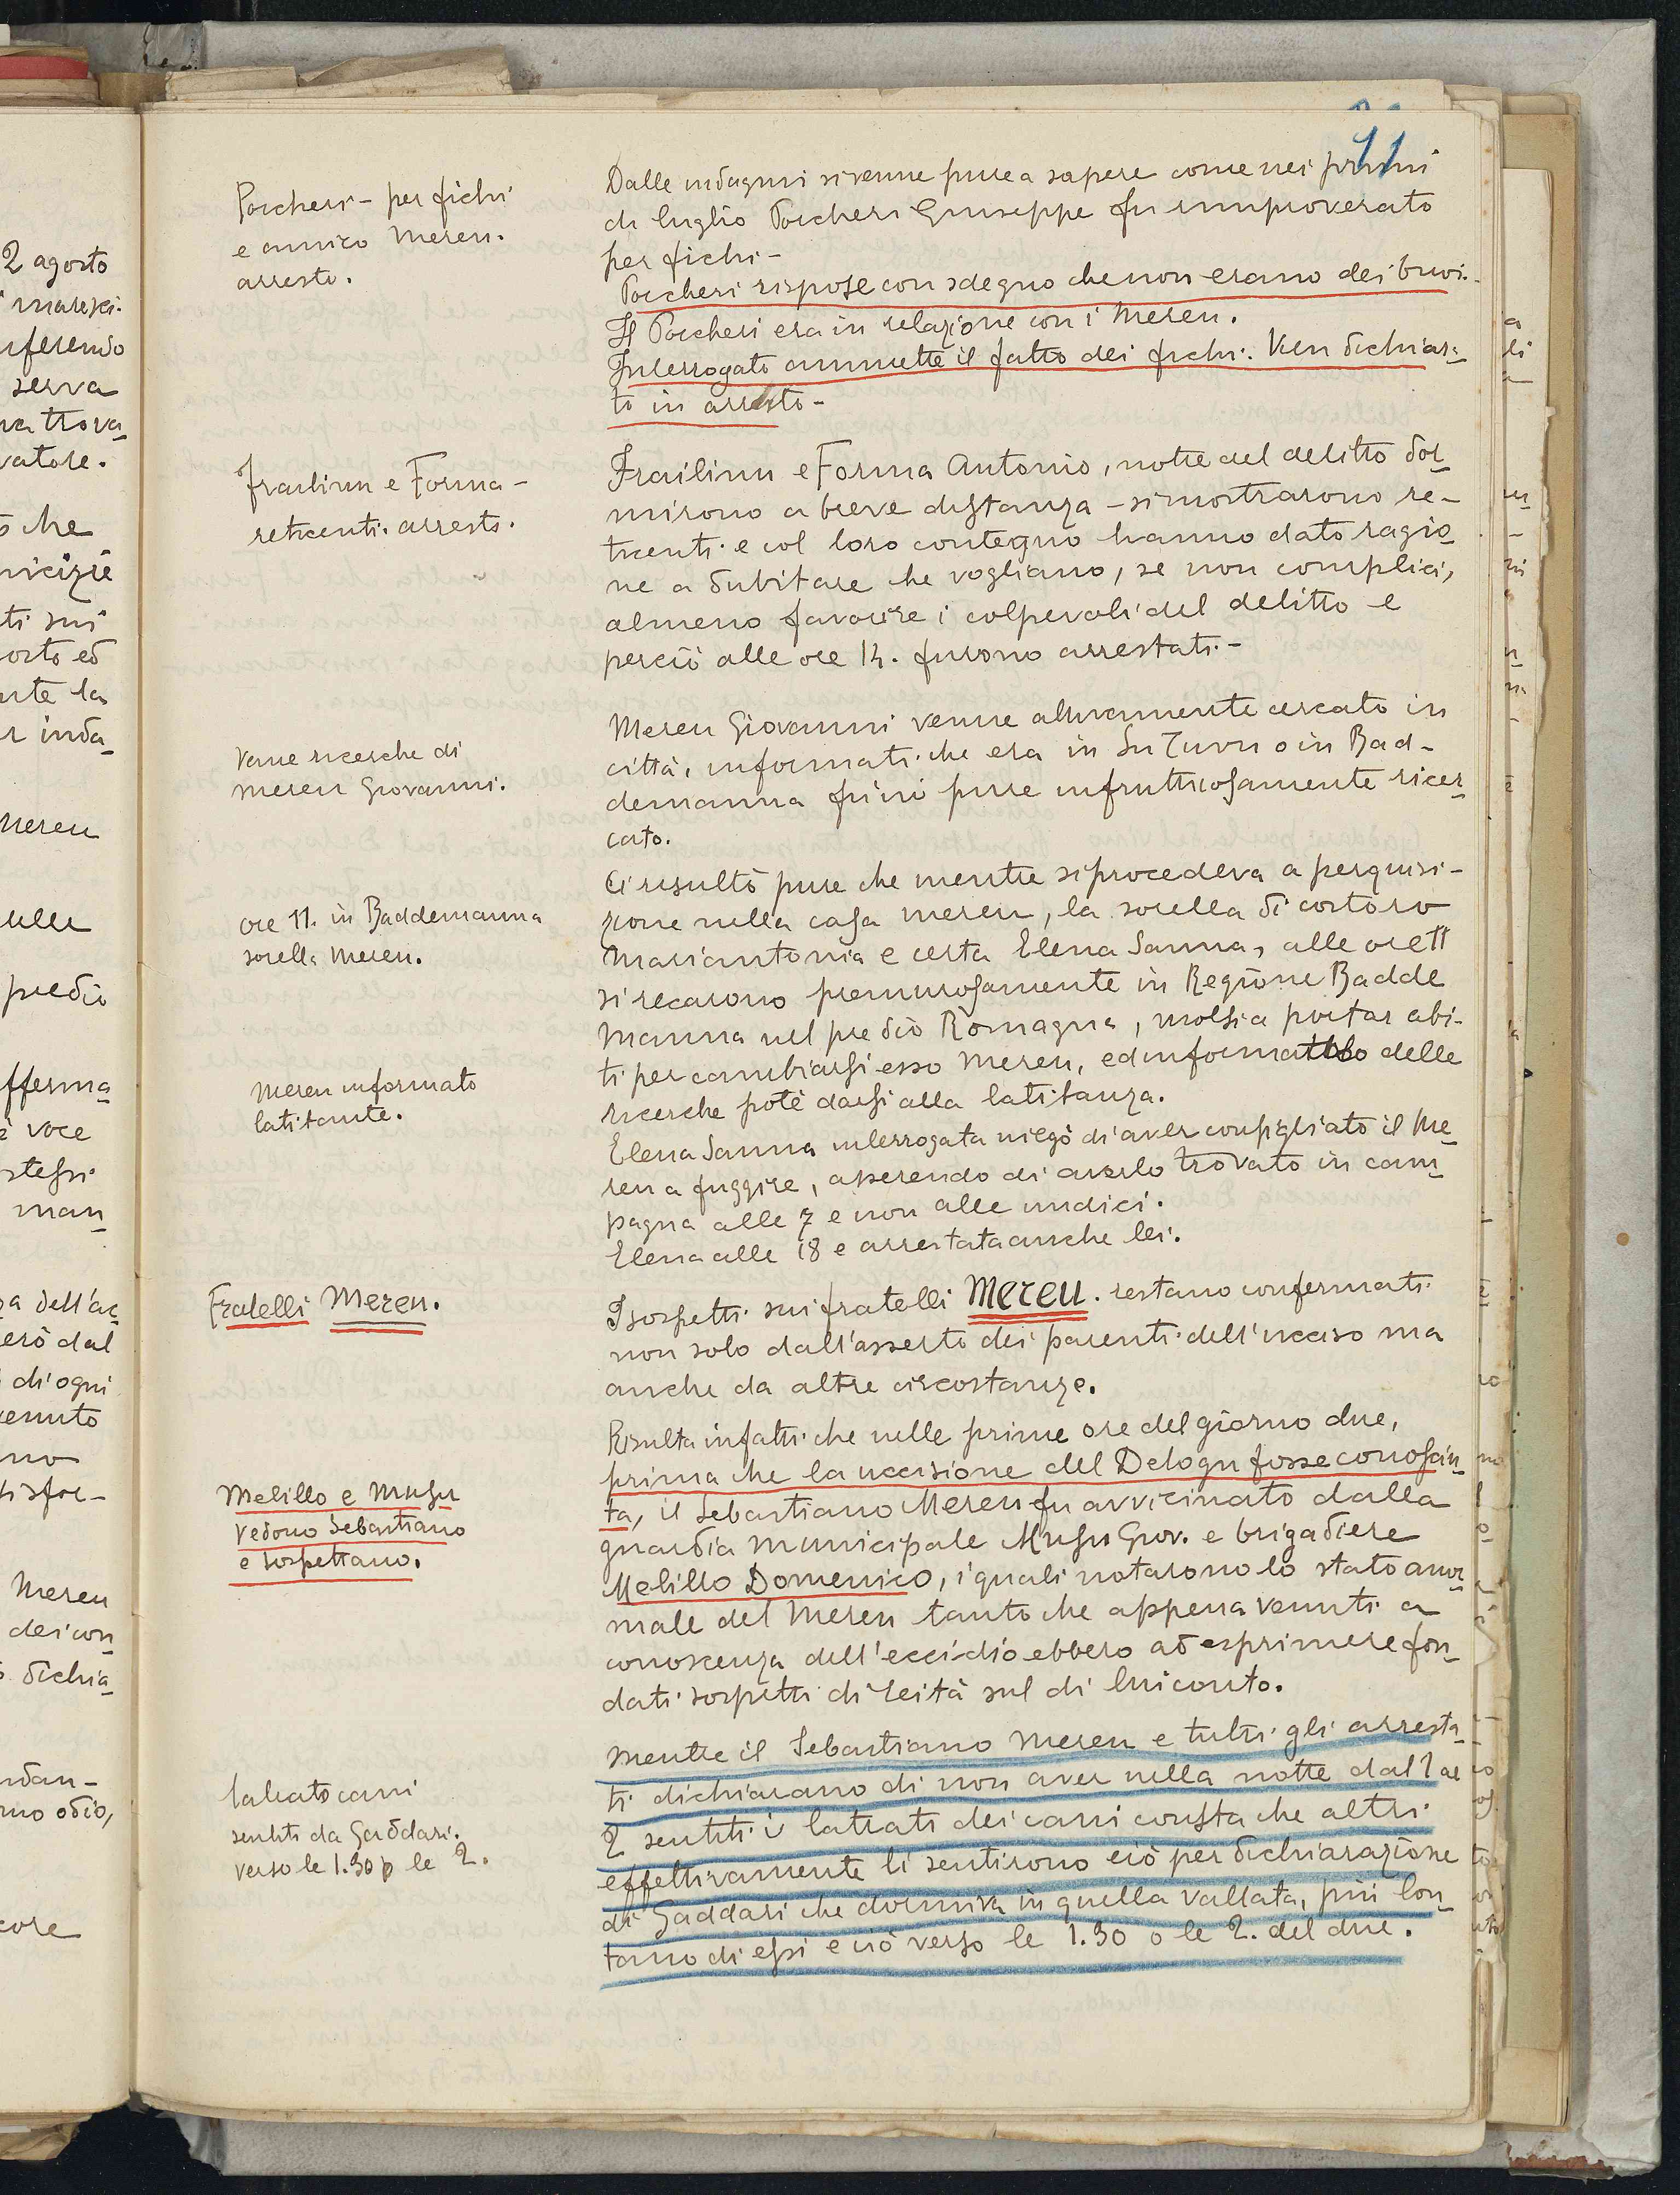 11
Porcheri - per fichi
e amico Mereu.
arresto.
Dalle indagini si venne pure a sapere come nei primi
di luglio Porcheri Giuseppe fu rimproverato
per fichi -
Porcheri rispose con sdegno che non erano dei buoi.
Il Porcheri era in relazione con i Mereu.
Interrogato ammette il fatto dei fichi. Vien dichiara-
to in arresto -
Frailinu e Forma -
reticenti. arresto.
Frailinu e Forma Antonio, notte del delitto dor-
mirono a breve distanza - si mostrarono re-
ticenti e col loro contegno hanno dato ragio-
ne a dubitare che vogliano, se non complici,
almeno favorire i colpevoli del delitto e
perciò alle ore 14. furono arrestati. -
Vane ricerche di
Mereu Giovanni.
Mereu Giovanni venne alacremente cercato in
città, informati che era in Su Tuvu o in Bad-
demanna pure infruttuosamente ricer-
cato.
ore 11. in Baddemanna
sorella Mereu.
Ci risultò pure che mentre si procedeva a perquisi-
zione nella casa Mereu, la sorella di costoro
Mariantonia e certa Elena Sanna, alle ore 11
si recarono premurosamente in Regione Badde
Manna nel predio Romagna, a portar abi-
ti per cambiarsi esso Mereu, ed informatolo delle
ricerche potè darsi alla latitanza.
Mereu informato
latitante.
Elena Sanna interrogata niegò di aver consigliato il Me-
reu a fuggire, asserendo di averlo trovato in cam-
pagna alle 7 e non alle undici.
Elena alle 18 e arrestata anche lei.
Fratelli Mereu.
I sospetti sui fratelli Mereu. restano confermati
non solo dall'asserto dei parenti dell'ucciso ma
anche da altre circostanze.
Risulta infatti che nelle prime ore del giorno due,
prima che la uccisione del Delogu fosse conosciu-
ta, il Sebastiano Mereu fu avvicinato dalla
guardia municipale Musu Giov. e brigadiere
Melillo Domenico, i quali notarono lo stato anor-
male del Mereu tanto che appena venuti a
conoscenza dell'eccidio ebbero ad esprimere fon-
dati sospetti di reità sul di lui conto.
Melillo e Musu
vedono Sebastiano
e sospettano.
Mentre il Sebastiano Mereu e tutti gli arresta-
ti dichiarano di non aver nella notte dal 1 al
2 sentiti i latrati dei cani consta che altri
effettivamente li sentirono ciò per dichiarazione
di Gaddari che dormiva in quella vallata, più lon-
tano di essi e ciò verso le 1.30 o le 2. del due.
latrato cani
sentiti da Gaddari.
verso le 1.30 o le 2.